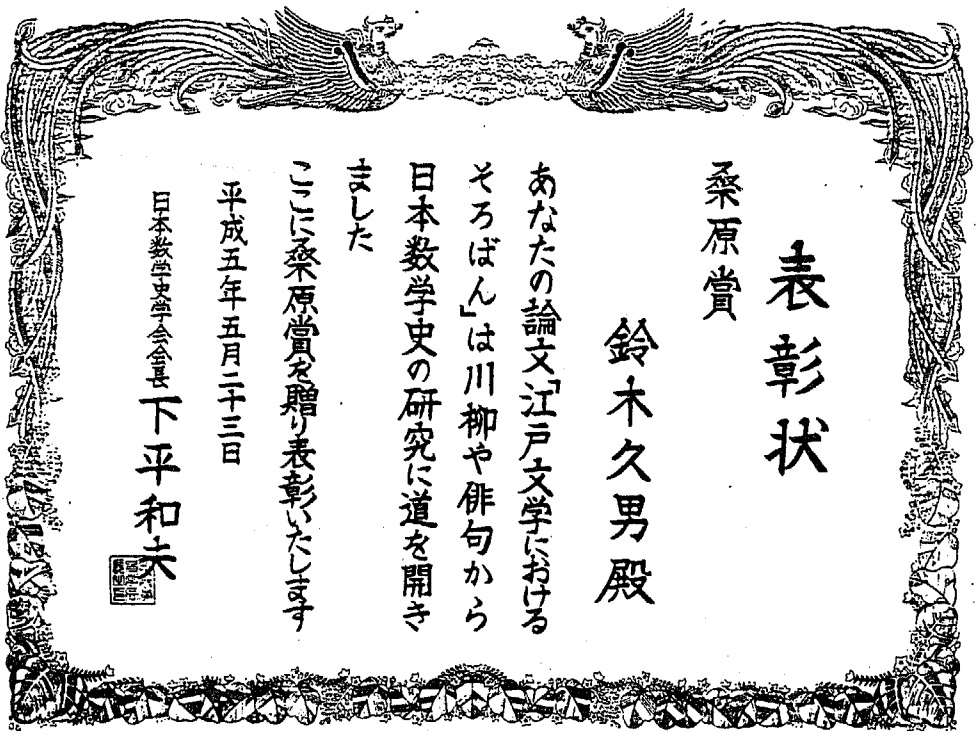 表彰状
桑原賞
鈴木久男殿
あなたの論文「江戸文学における
そろばん」は川柳や俳句から
日本数学史の研究に道を開き
ました
ここに桑原賞を贈り表彰いたします
平成五年五月二十三日
日本数学史学会会長 下平和夫